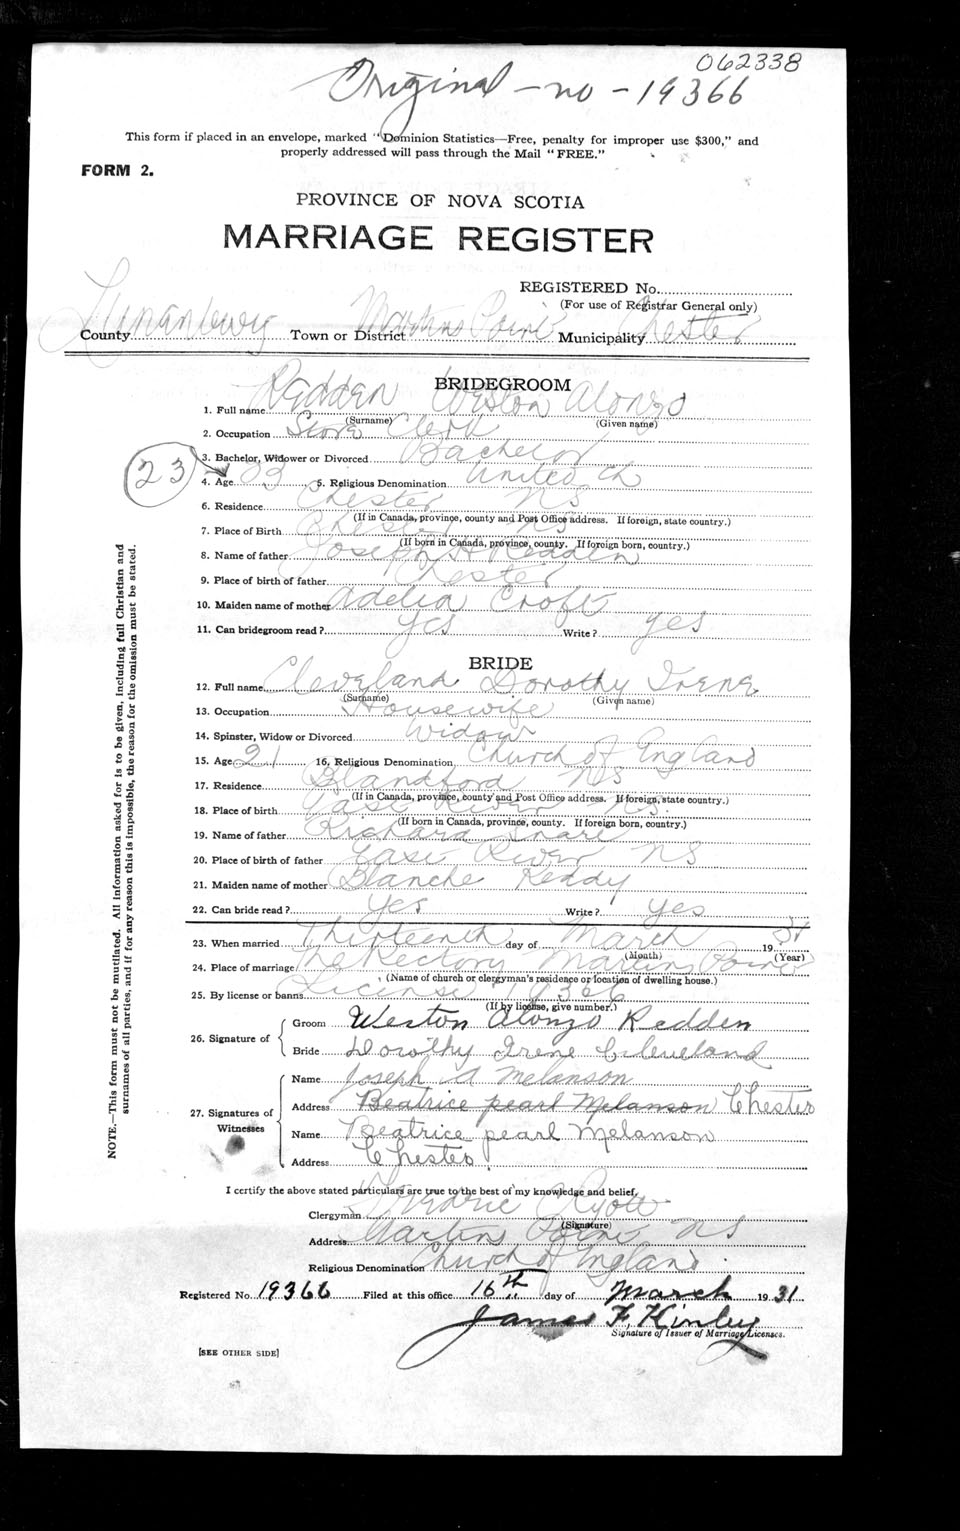 062338
Original - no - 19366
This form if placed in an envelope, marked "Dominion Statistics—Free, penalty for improper use $300," and
properly addressed will pass through the Mail "FREE."
FORM 2.
PROVINCE OF NOVA SCOTIA
MARRIAGE REGISTER
REGISTERED No.
(For use of Registrar General only)
County Lunenburg Town or District Martins Point Municipality Chester
BRIDEGROOM
1. Full name Redden Weston Alonzo
(Surname) (Given name)
2. Occupation Store Clerk
3. Bachelor, Widower or Divorced Bachelor
23
4. Age 23 5. Religious Denomination United Ch
6. Residence Chester NS
(If in Canada, province, county and Post Office address. If foreign, state country.)
7. Place of Birth Chester NS
(If born in Canada, province, county. If foreign born, country.)
8. Name of father Joseph H Redden
9. Place of birth of father Chester
10. Maiden name of mother Adelia Croft
11. Can bridegroom read? Yes Write? yes
BRIDE
12. Full name Cleveland Dorothy Irene
(Surname) (Given name)
13. Occupation Housewife
14. Spinster, Widow or Divorced Widow
15. Age 21 16. Religious Denomination Church of England
17. Residence Blandford NS
(If in Canada, province, county and Post Office address. If foreign, state country.)
18. Place of birth East River NS
(If born in Canada, province, county. If foreign born, country.)
19. Name of father Richard
20. Place of birth of father East River NS
21. Maiden name of mother Blanche Reddy
22. Can bride read? Yes Write? Yes
23. When married Thirteenth day of March 1931
(Month) (Year)
24. Place of marriage The Rectory Martins Point
(Name of church or clergyman's residence or location of dwelling house.)
25. By license or banns License 19366
(If by license, give number.)
26. Signature of
Groom Weston Alonzo Redden
Bride Dorothy Irene Cleveland
27. Signatures of Witnesses
Name Joseph A Melanson
Address Beatrice pearl Melanson Chester
Name Beatrice pearl Melanson
Address Chester
I certify the above stated particulars are true to the best of my knowledge and belief,
Clergyman Fredric Ryott
(Signature)
Address Martins Point NS
Religious Denomination Church of England
Registered No. 19366 Filed at this office 16th day of March 1931
James F. Kinley
Signature of Issuer of Marriage Licenses.
[SEE OTHER SIDE]
NOTE.—This form must not be mutilated. All information asked for is to be given, including full Christian and
surnames of all parties, and if for any reason this is impossible, the reason for the omission must be stated.